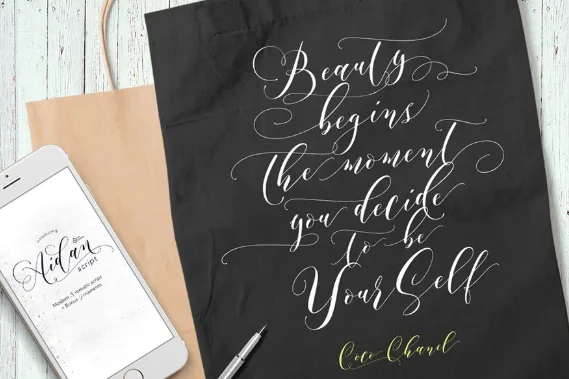 Beauty
begins
the moment
you decide
to be
YourSelf
Coco Chanel
Aidan
script
Modern & romatic script
+ Bonus